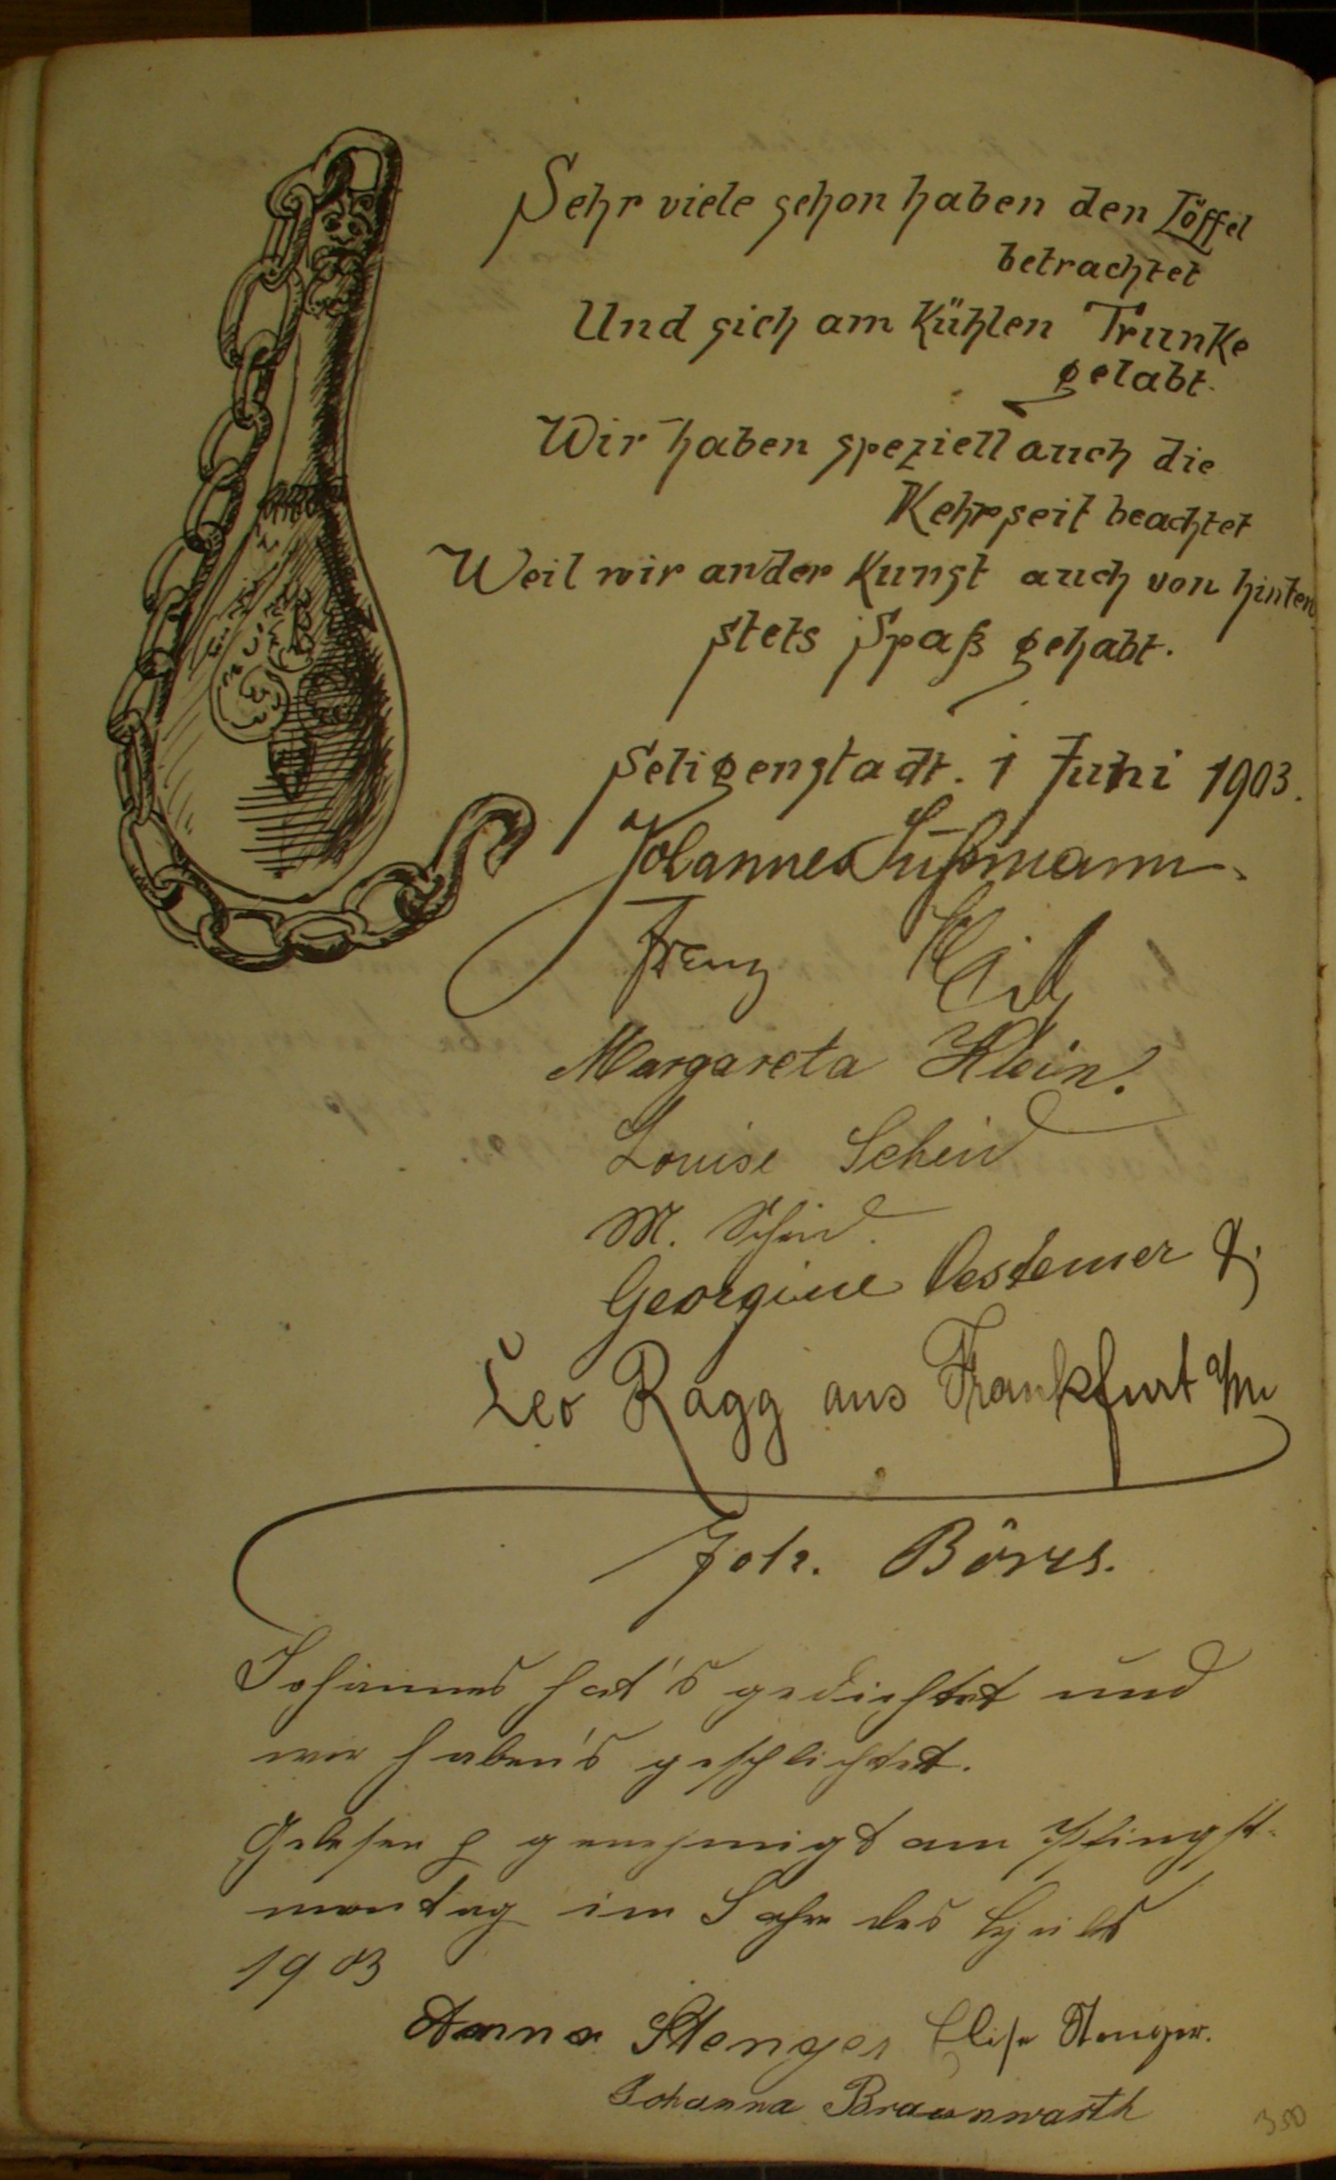 Sehr viele schon haben den Löffel
betrachtet
Und sich am kühlen Trunke
gelabt.
Wir haben speziell auch die
Kehrseit beachtet
Weil wir an der Kunst auch von hinten
stets Spaß gehabt.
Seligenstadt. 1 Juni 1903.
Johannes Sußmann.
Franz
Margareta Klein.
Louise Scheid
M. Scheid.
Georgine Oestemer
Leo Ragg aus Frankfurt a/m
Joh. Börs.
Johannes hat's gedichtet und
wir haben's geschlichtet.
Gelesen & genehmigt am Pfingst-
montag im Jahre des Heils
1903
Anna Stenger Elise Stenger.
Johanna Braunwarth
350